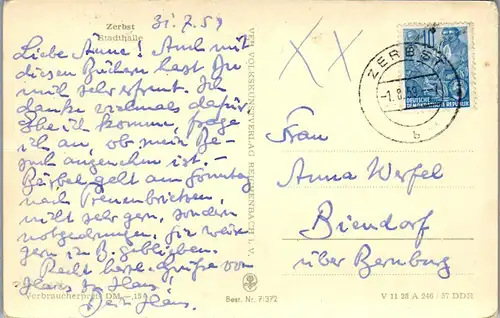 Zerbst
Stadthalle
31.7.59
Liebe Änne! Auch mit
diesen Büchern hast Du
mich sehr erfreut. Ich
danke vielmals dafür
Ehe ich komme, frage
ich an, ob mein Be-
such angenehm ist. –
Bärbel geht am Sonntag
nach Treuenbrietzen,
nicht sehr gern, sondern
notgedrungen, sie wäre
gern in B. geblieben.
Recht herzl. Grüße von
Haus zu Haus!
Dein Hans.
Verbraucherpreis DM –,15
VEB VOLKSKUNSTVERLAG REICHENBACH I. V.
Best. Nr. 7/372
XX
ZERBST
-1.8.59
b
DEUTSCHE
DEMOKRATISCHE REPUBLIK
Frau
Anna Werfel
Biendorf
über Bernburg
V 11 28 A 246 / 57 DDR